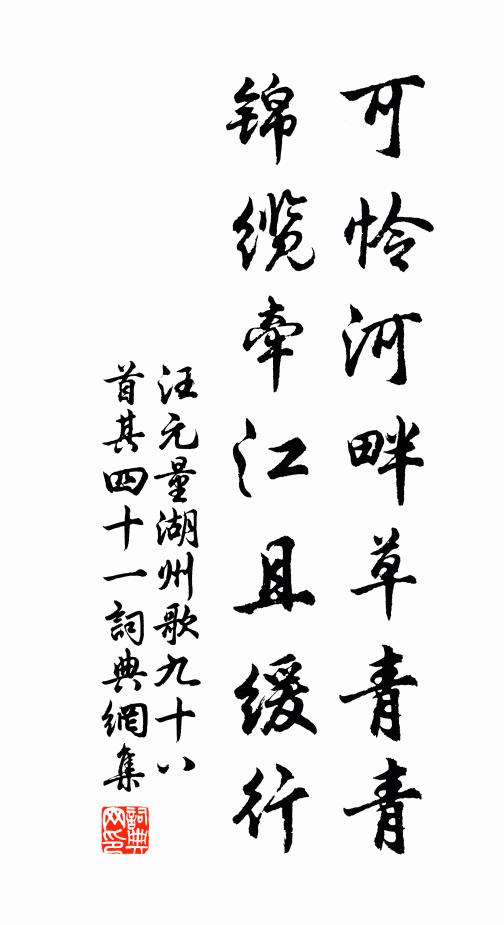 可怜河畔草青青
锦缆牵江且缓行
汪元量湖州歌九十八
首其四十一詞典網集
詞典
网印